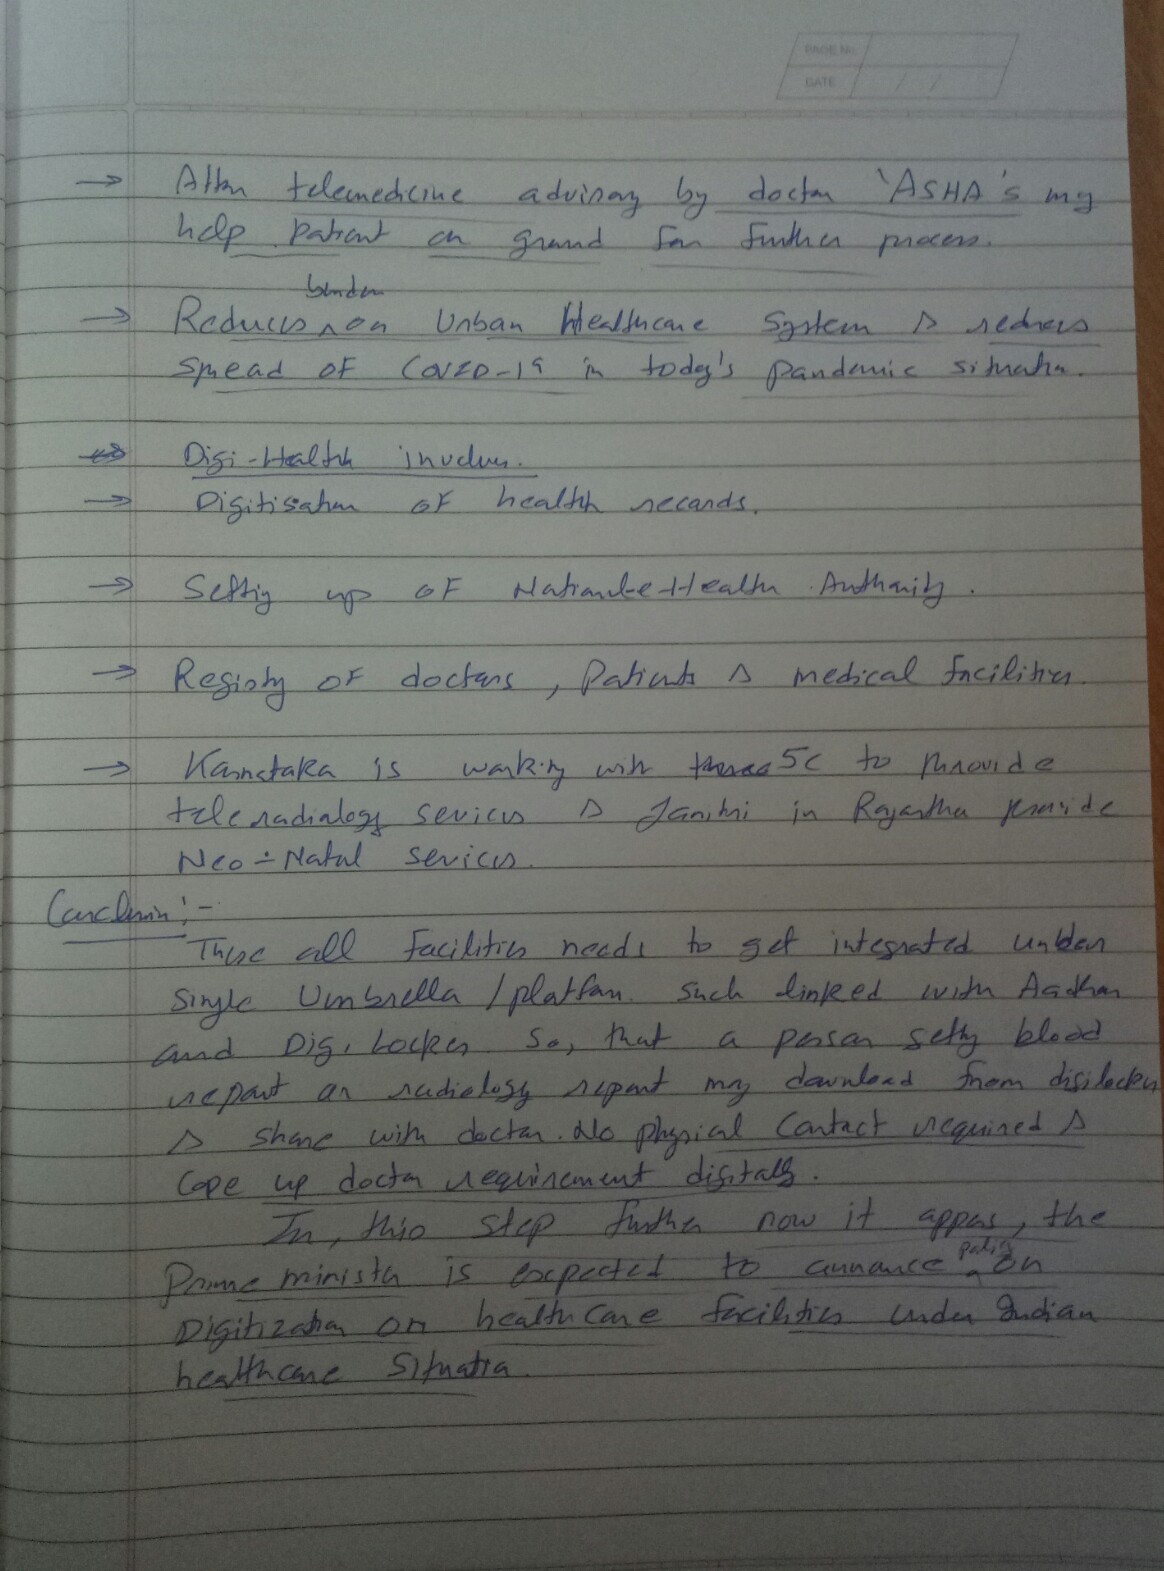 PAGE No.
DATE / /
→ After telemedicine advisory by doctor 'ASHA's my
help patient on ground for further process.
burden
→ Reduces ^ on Urban Healthcare System & reduces
spread of COVID-19 in today's pandemic situation.
Digi-Health involves.
→ Digitisation of health records.
→ Setting up of National e-Health Authority.
→ Registry of doctors, Patients & medical facilities.
→ Karnataka is working with 5C to provide
teleradiology sevices & Janitri in Rajasthan provide
Neo-Natal sevices.
Conclusion:-
These all facilities needs to get integrated under
single Umbrella / platform. Such linked with Aadhar
and Digi Locker so, that a person getting blood
report or radiology report may download from digilocker
& share with doctor. No physical contact required &
cope up doctor requirement digitally.
In, this step further now it appears, the
Prime minister is expected to announce ^ on
policy
Digitization on healthcare facilities under Indian
healthcare situation.